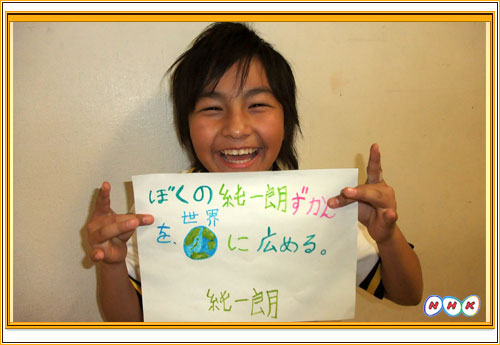 ぼくの純一朗ずかん
世界
を、に広める。
純一朗
NHK